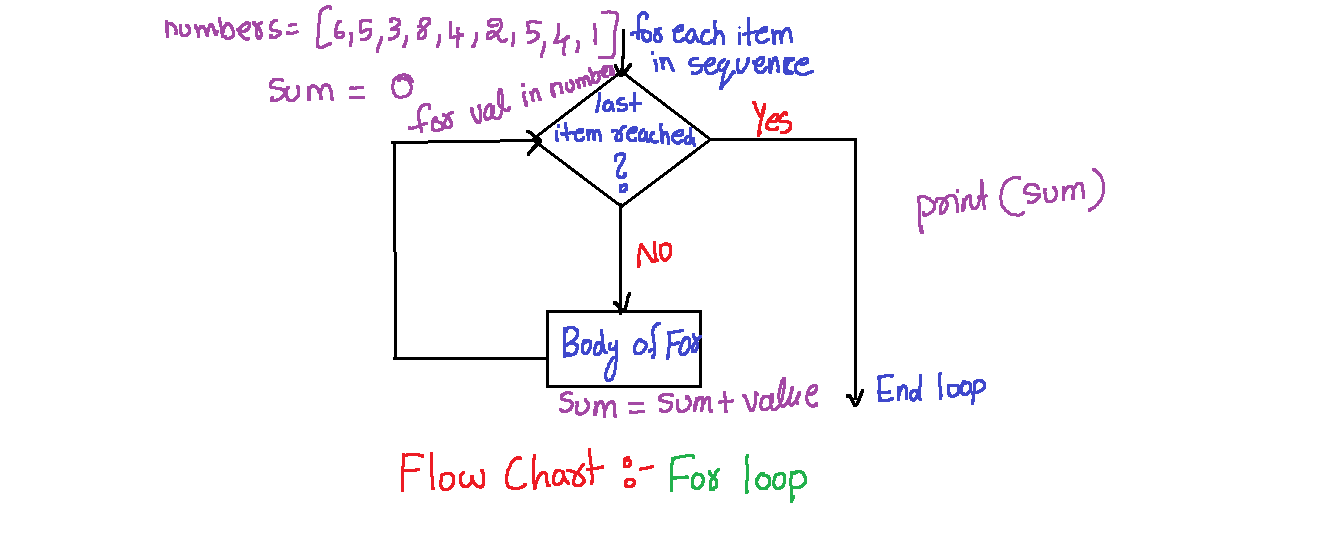 numbers= [6,5,3,8,4,2,5,4,1]
for each item
in sequence
sum = 0
for val in number
last
item reached
?
Yes
print(sum)
NO
Body of For
sum = sum+value
End loop
Flow Chart :- For loop